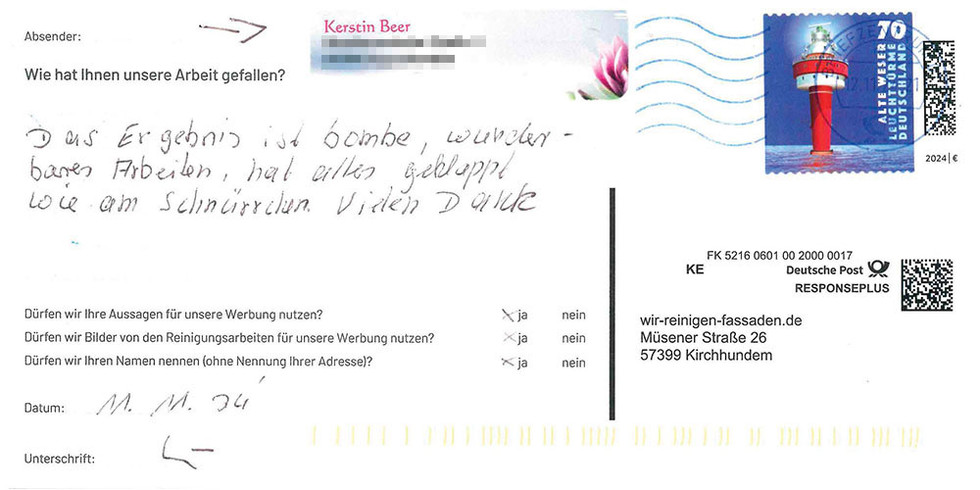 Absender:
Kerstin Beer
Wie hat Ihnen unsere Arbeit gefallen?
Das Ergebnis ist bombe, wunder-
bares Arbeiten, hat alles geklappt
wie am Schnürrchen. Vielen Dank
70
ALTE WESER
LEUCHTTÜRME
DEUTSCHLAND
2024 | €
FK 5216 0601 00 2000 0017
KE
Deutsche Post
RESPONSEPLUS
wir-reinigen-fassaden.de
Müsener Straße 26
57399 Kirchhundem
Dürfen wir Ihre Aussagen für unsere Werbung nutzen? ja nein
Dürfen wir Bilder von den Reinigungsarbeiten für unsere Werbung nutzen? ja nein
Dürfen wir Ihren Namen nennen (ohne Nennung Ihrer Adresse)? ja nein
Datum: 11. 11. 24
Unterschrift: